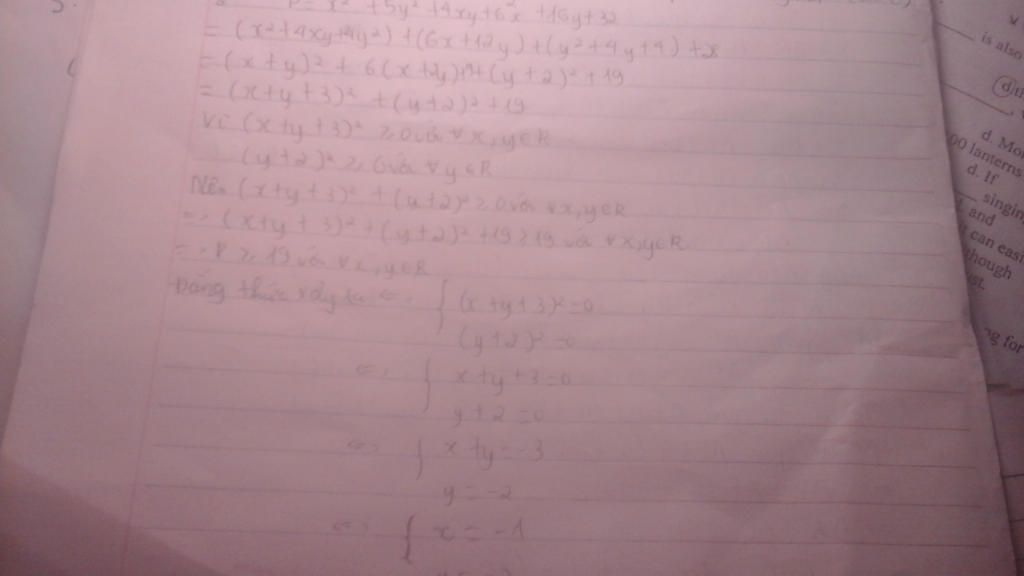 P = x² + 5y² + 4xy + 6x + 16y + 32
= (x² + 4xy + 4y²) + (6x + 12y) + (y² + 4y + 4) + 28
= (x + y)² + 6(x + 2y) + 9 + (y + 2)² + 19
= (x + y + 3)² + (y + 2)² + 19
Vì (x + y + 3)² ≥ 0 với ∀ x, y ∈ R
(y + 2)² ≥ 0 với ∀ y ∈ R
Nên (x + y + 3)² + (y + 2)² ≥ 0 với ∀ x, y ∈ R
=> (x + y + 3)² + (y + 2)² + 19 ≥ 19 với ∀ x, y ∈ R
=> P ≥ 19 với ∀ x, y ∈ R
Đẳng thức xảy ra <=> { (x + y + 3)² = 0
(y + 2)² = 0
<=> { x + y + 3 = 0
y + 2 = 0
<=> { x + y = -3
y = -2
<=> { x = -1
is also
d. Mo
00 lanterns
d. If
singin
and
can easi
though
st.
ng for